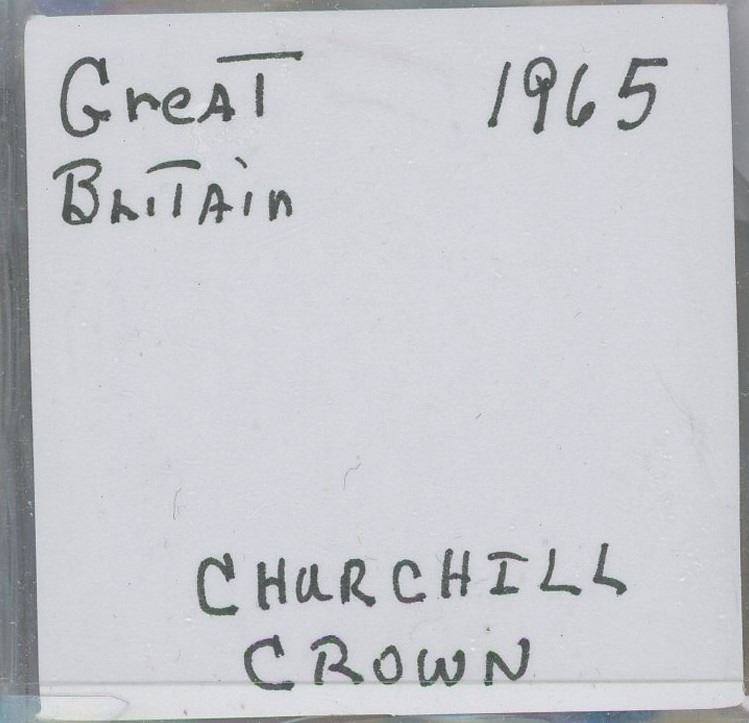 Great 1965
Britain
CHURCHILL
CROWN